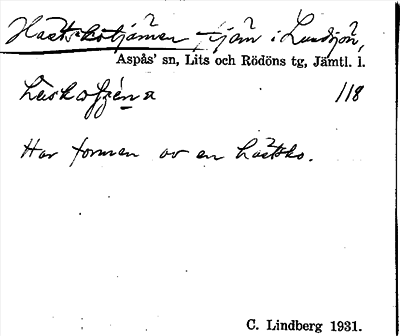 Hästskotjärnen, tjärn i Lundsjön,
Aspås' sn, Lits och Rödöns tg, Jämtl. l.
118
Har formen av en hästsko.
C. Lindberg 1931.